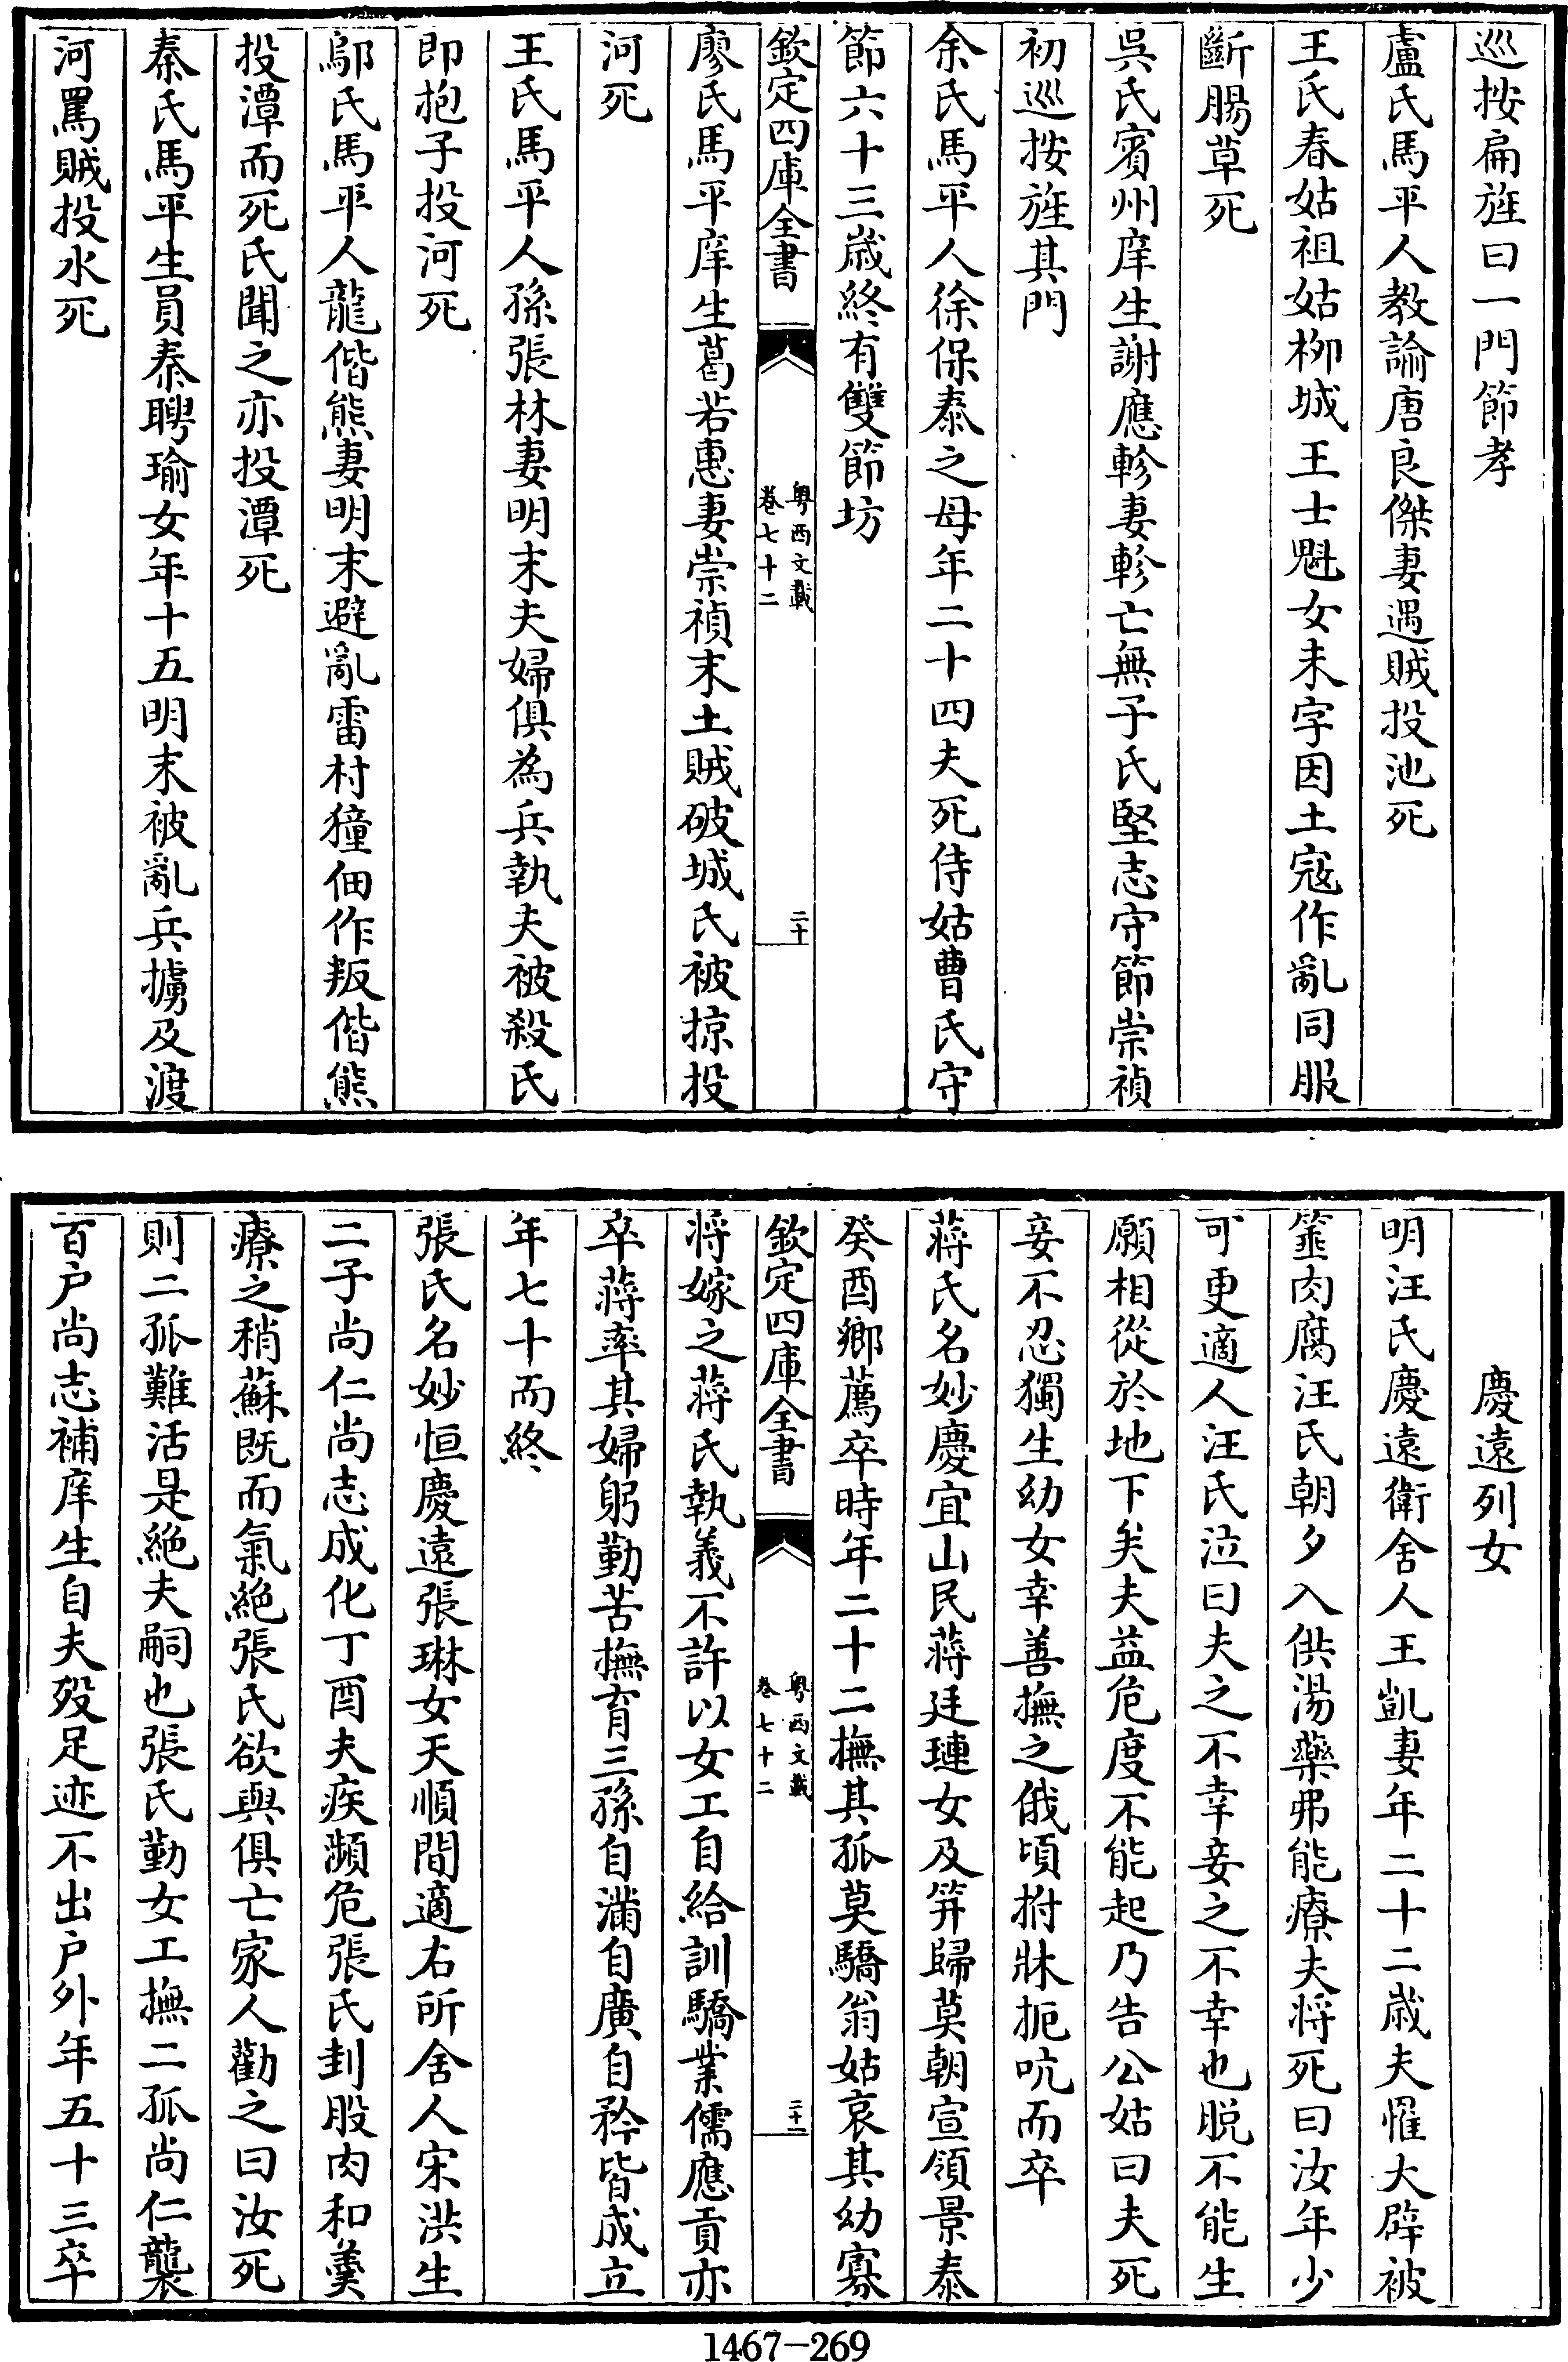 巡按扁旌曰一門節孝
盧氏馬平人教諭唐良傑妻遇賊投池死
王氏春姑祖姑柳城王士魁女未字因土寇作亂同服
斷腸草死
吳氏賓州庠生謝應軫妻軫亡無子氏堅志守節崇禎
初巡按旌其門
余氏馬平人徐保泰之母年二十四夫死侍姑曹氏守
節六十三歲終有雙節坊
欽定四庫全書
粵西文載
卷七十二
二十
廖氏馬平庠生葛若惠妻崇禎末土賊破城氏被掠投
河死
王氏馬平人孫張林妻明末夫婦俱為兵執夫被殺氏
即抱子投河死
鄔氏馬平人龍偕熊妻明末避亂雷村獞佃作叛偕熊
投潭而死氏聞之亦投潭死
秦氏馬平生員秦聘瑜女年十五明末被亂兵擄及渡
河罵賊投水死
慶遠列女
明汪氏慶遠衛舍人王凱妻年二十二歲夫罹大辟被
箠肉腐汪氏朝夕入供湯藥弗能療夫將死曰汝年少
可更適人汪氏泣曰夫之不幸妾之不幸也脫不能生
願相從於地下矣夫益危度不能起乃告公姑曰夫死
妾不忍獨生幼女幸善撫之俄頃拊牀扼吭而卒
蔣氏名妙慶宜山民蔣廷璉女及笄歸莫朝宣領景泰
癸酉鄉薦卒時年二十二撫其孤莫驕翁姑哀其幼寡
欽定四庫全書
粵西文載
卷七十二
二十一
將嫁之蔣氏執義不許以女工自給訓驕業儒應貢亦
卒蔣率其婦躬勤苦撫育三孫自滿自廣自矜皆成立
年七十而終
張氏名妙恒慶遠張琳女天順間適右所舍人宋洪生
二子尚仁尚志成化丁酉夫疾瀕危張氏刲股肉和羹
療之稍蘇既而氣絕張氏欲與俱亡家人勸之曰汝死
則二孤難活是絕夫嗣也張氏勤女工撫二孤尚仁襲
百户尚志補庠生自夫歿足迹不出户外年五十三卒
1467-269